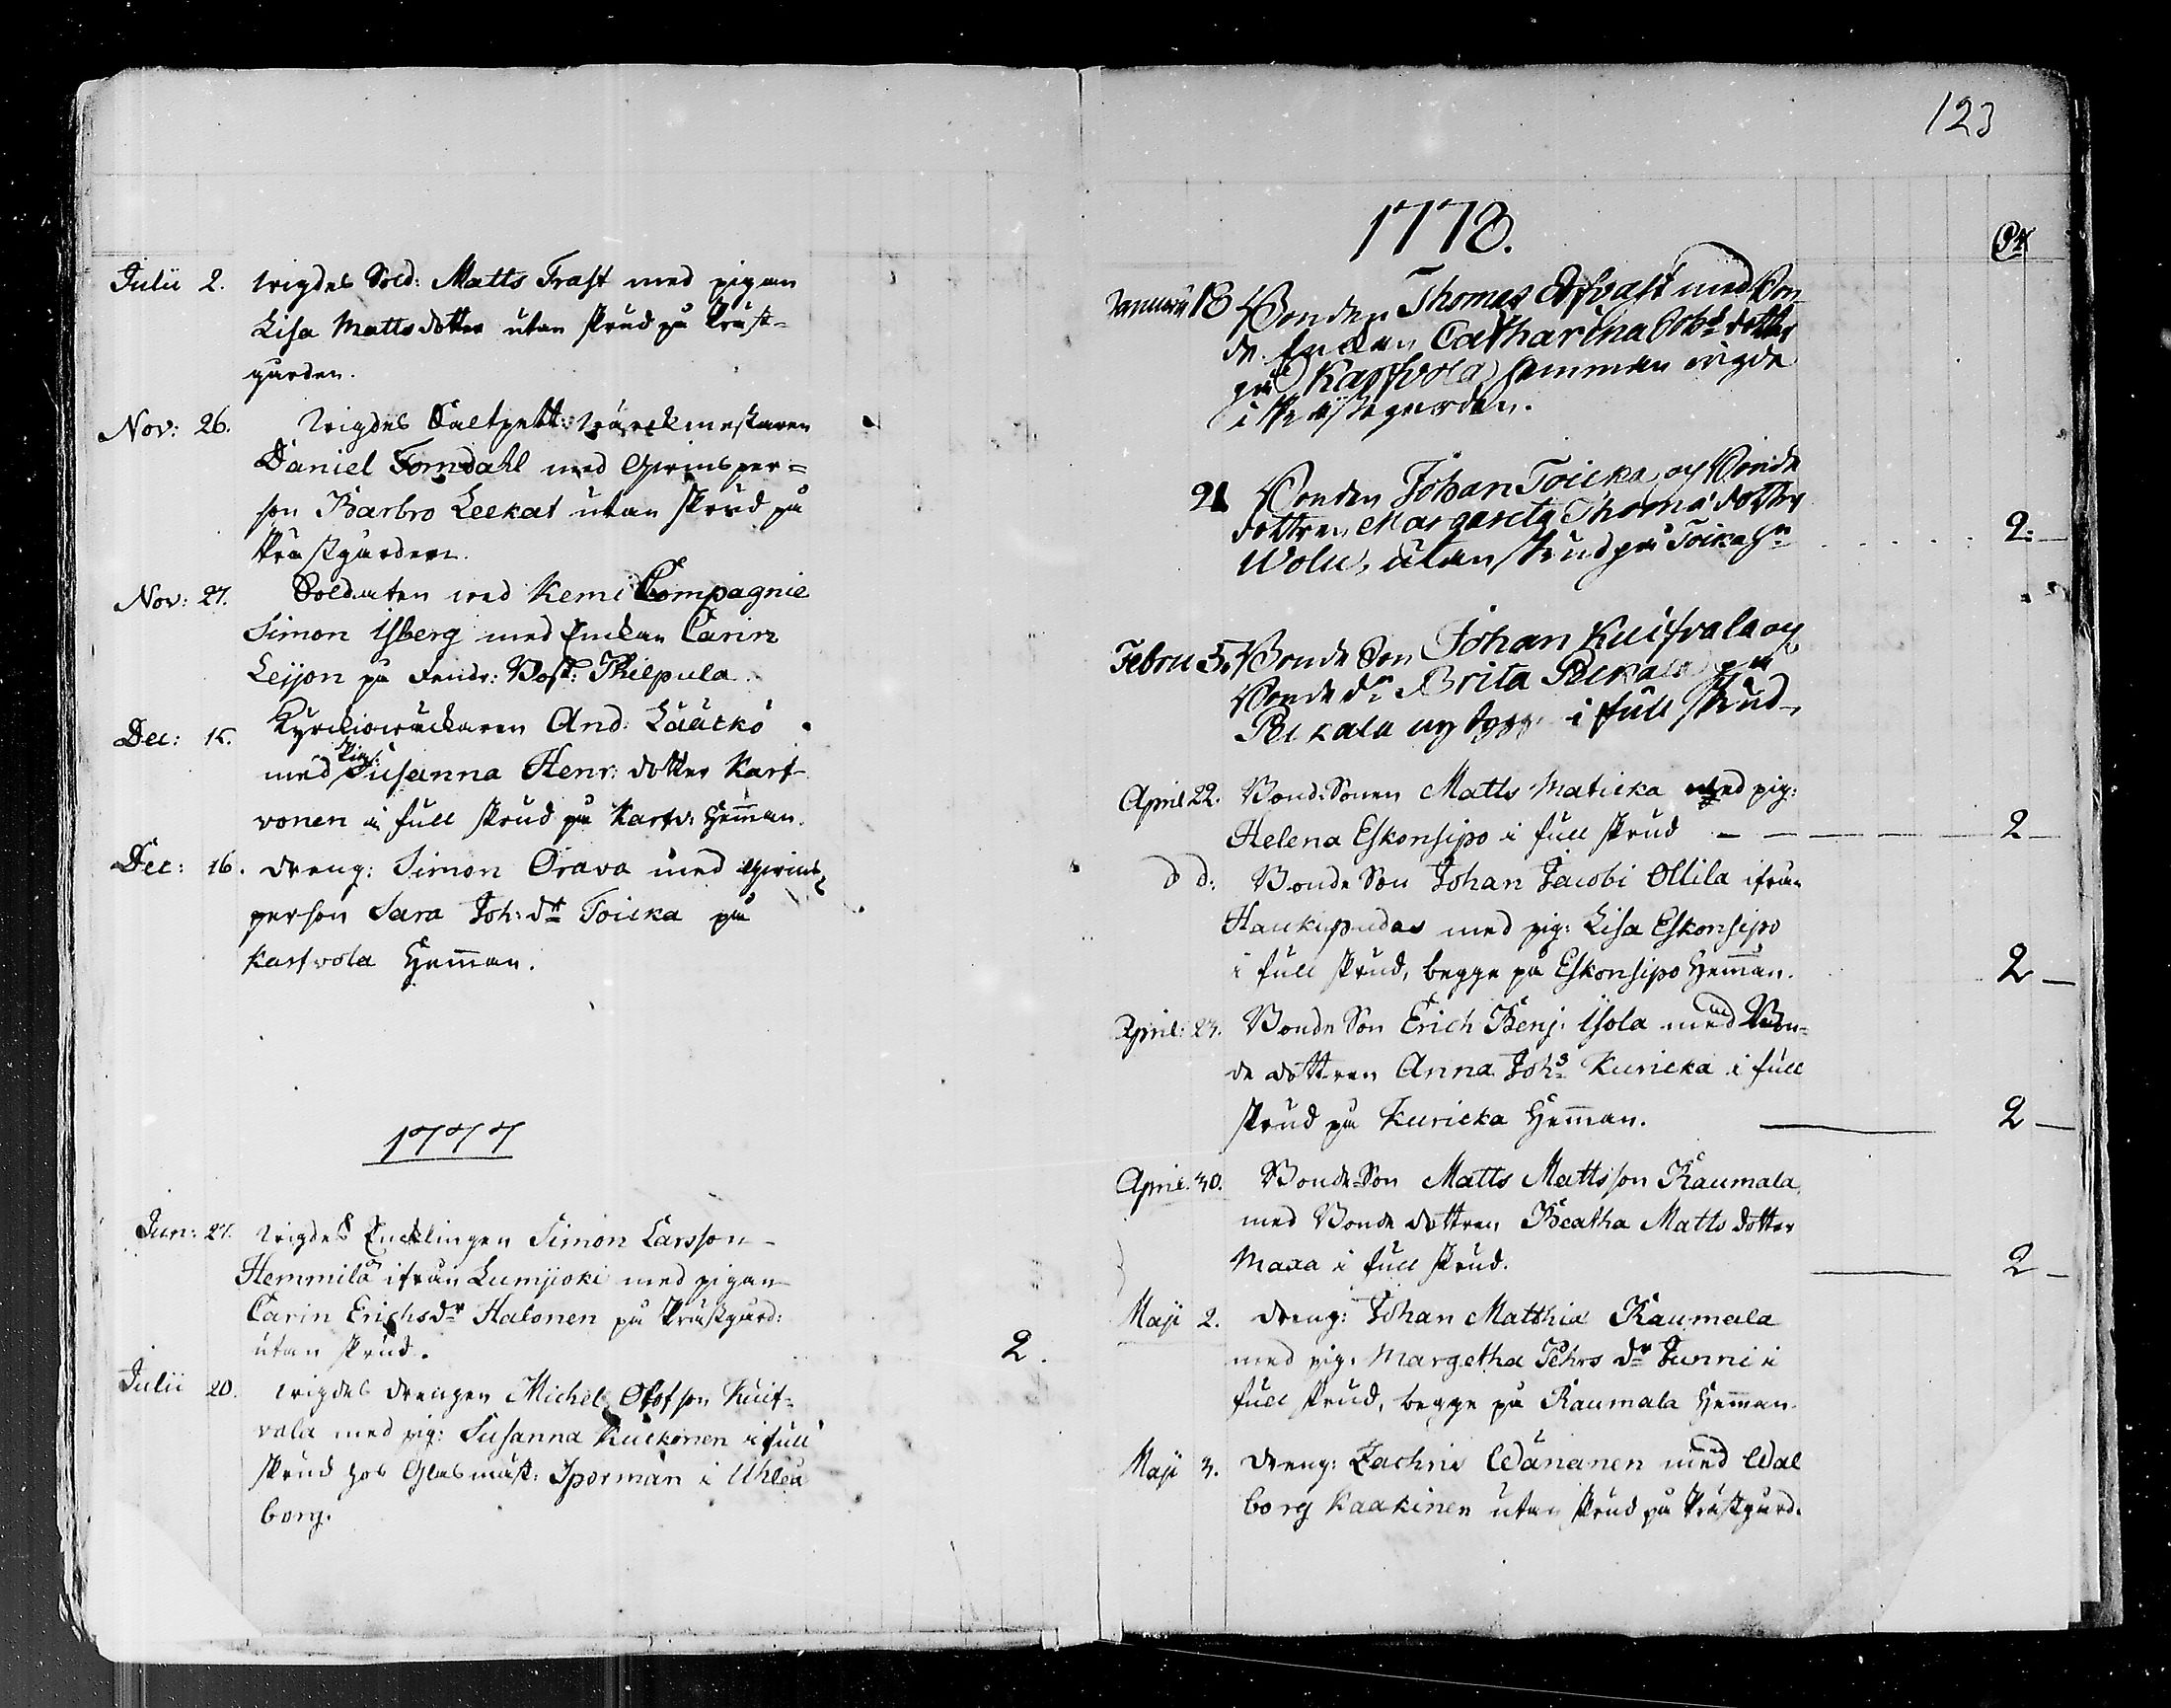 Julii 2. wigdes Sold: Matts Frast med pigan
Lisa Mattsdotter utan skrud på Präst-
gården.
Nov: 26. Wigdes Saltpett:
Daniel Forndahl med Qwinsper=
son Barbro Leekat utan skrud på
Prästgården.
Nov: 27. Soldaten wed Kemi Compagnie
Simon Isberg med Enkan Carin
Leijon på Fendr: Bost: Pilpula.
Dec: 15. And: Läätkö
med Pig: Susanna Henr: dotter Karf-
vonen i full skrud på Karfv: Hemman.
Dec: 16. dreng: Simon Orava med Qwins
person Sara Joh: dr Toicka på
Karfvola Hemman.
1777
Jun: 27. wigdes Encklingen Simon Larsson
Hemmilä ifrån Lumijoki med pigan
Carin Erichsdr Halonen på Prästgård:
utan skrud. 2.
Julii 20. wigdes drengen Michel Olofson Kuif-
vala med pig: Susanna Kuckonen i full
skrud hos Glasmäst: Sporman i Uhleå
borg.
123
1778.
Januarii 18 Bonden Thomas med Bon
de Enckan Catharina Johs dotter
på Karfvola hemman wigde
i Prästegården.
21 Bonden Johan Toicka och Bonde
dottren Margareta Thoms dotter
Wolu, utan skrud på Toicka Hn 2:
Febru 5. Bonde Son Johan Kuifvala och
Bonde dr Brita Pekala på
Pekala nybygge i full skrud
April 22. Bond: Sonen Matts Maticka med pig:
Helena Eskonsipo i full skrud 2
d d: Bonde Son Johan Jacobi Ollila ifrån
Haukipudas med pig: Lisa Eskonsipo
i full skrud, begge på Eskonsipo Hemman. 2
April: 23. Bonde Son Erich Benj: Isola med Bon=
de dottren Anna Johs Kuricka i full
skrud på Kuricka Hemman. 2
April. 30. Bonde Son Matts Mattsson Raumala
med Bonde dottren Beatha Matts dotter
Maxa i full skrud. 2
Maji 2. dreng: Johan Matthiæ Raumala
med pig: Margetha Pehrs dr Junni i
full skrud, begge på Raumala Hemman.
Maji 3. dreng: Zachris Wänänen med Wal
borg Kaakinen utan skrud på Prästgård.